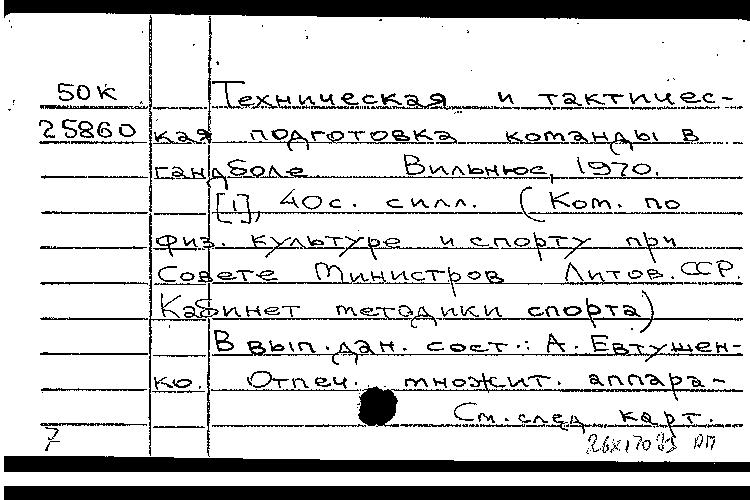 50К Техническая и тактичес-
25860 кая подготовка команды в
гандболе. Вильнюс, 1970.
[1], 40с. силл. (Ком. по
физ. культуре и спорту при
Совете Министров Литов. ССР.
Кабинет методики спорта)
В вып. дан. сост.: А. Евтушен-
ко. Отпеч. множит. аппара-
См. след карт.
7